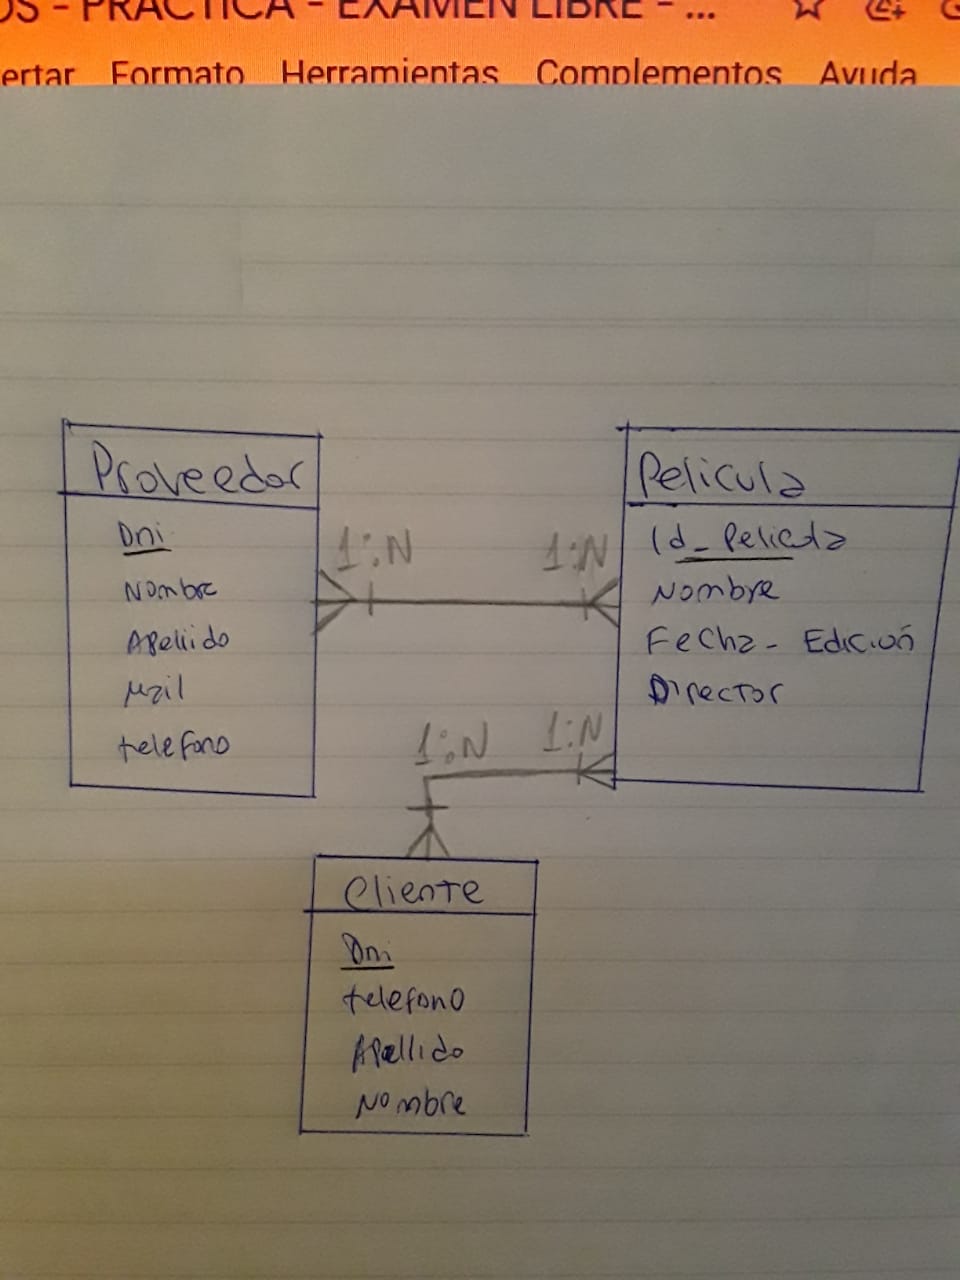 OS - PRÁCTICA - EXAMEN LIBRE - ...
ertar Formato Herramientas Complementos Ayuda
Proveedor
Dni
Nombre
Apellido
Mail
telefono
1:N
1:N
Pelicula
Id_Pelicula
Nombre
Fecha_Edición
Director
1:N
1:N
Cliente
Dni
telefono
Apellido
Nombre